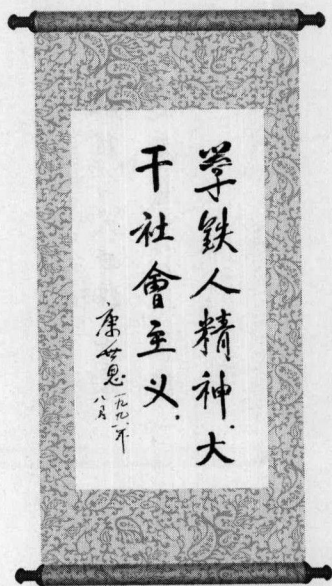 学铁人精神、大
干社會主义.
康世恩一九九一年
八月